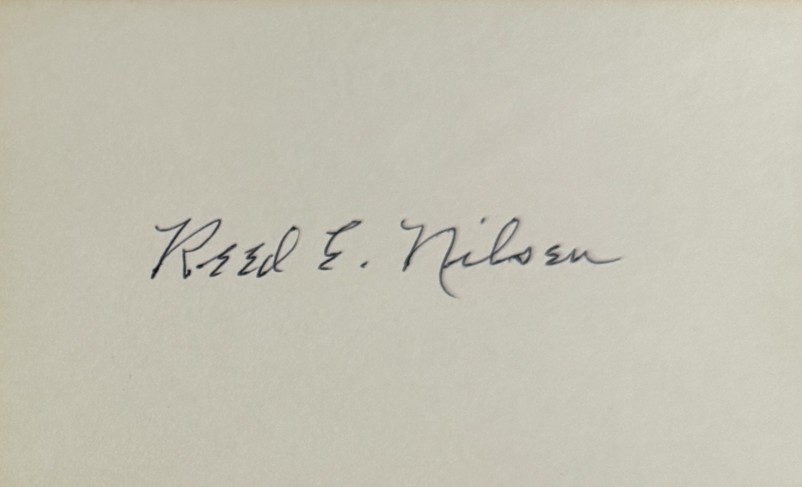 Reed E. Nilsen